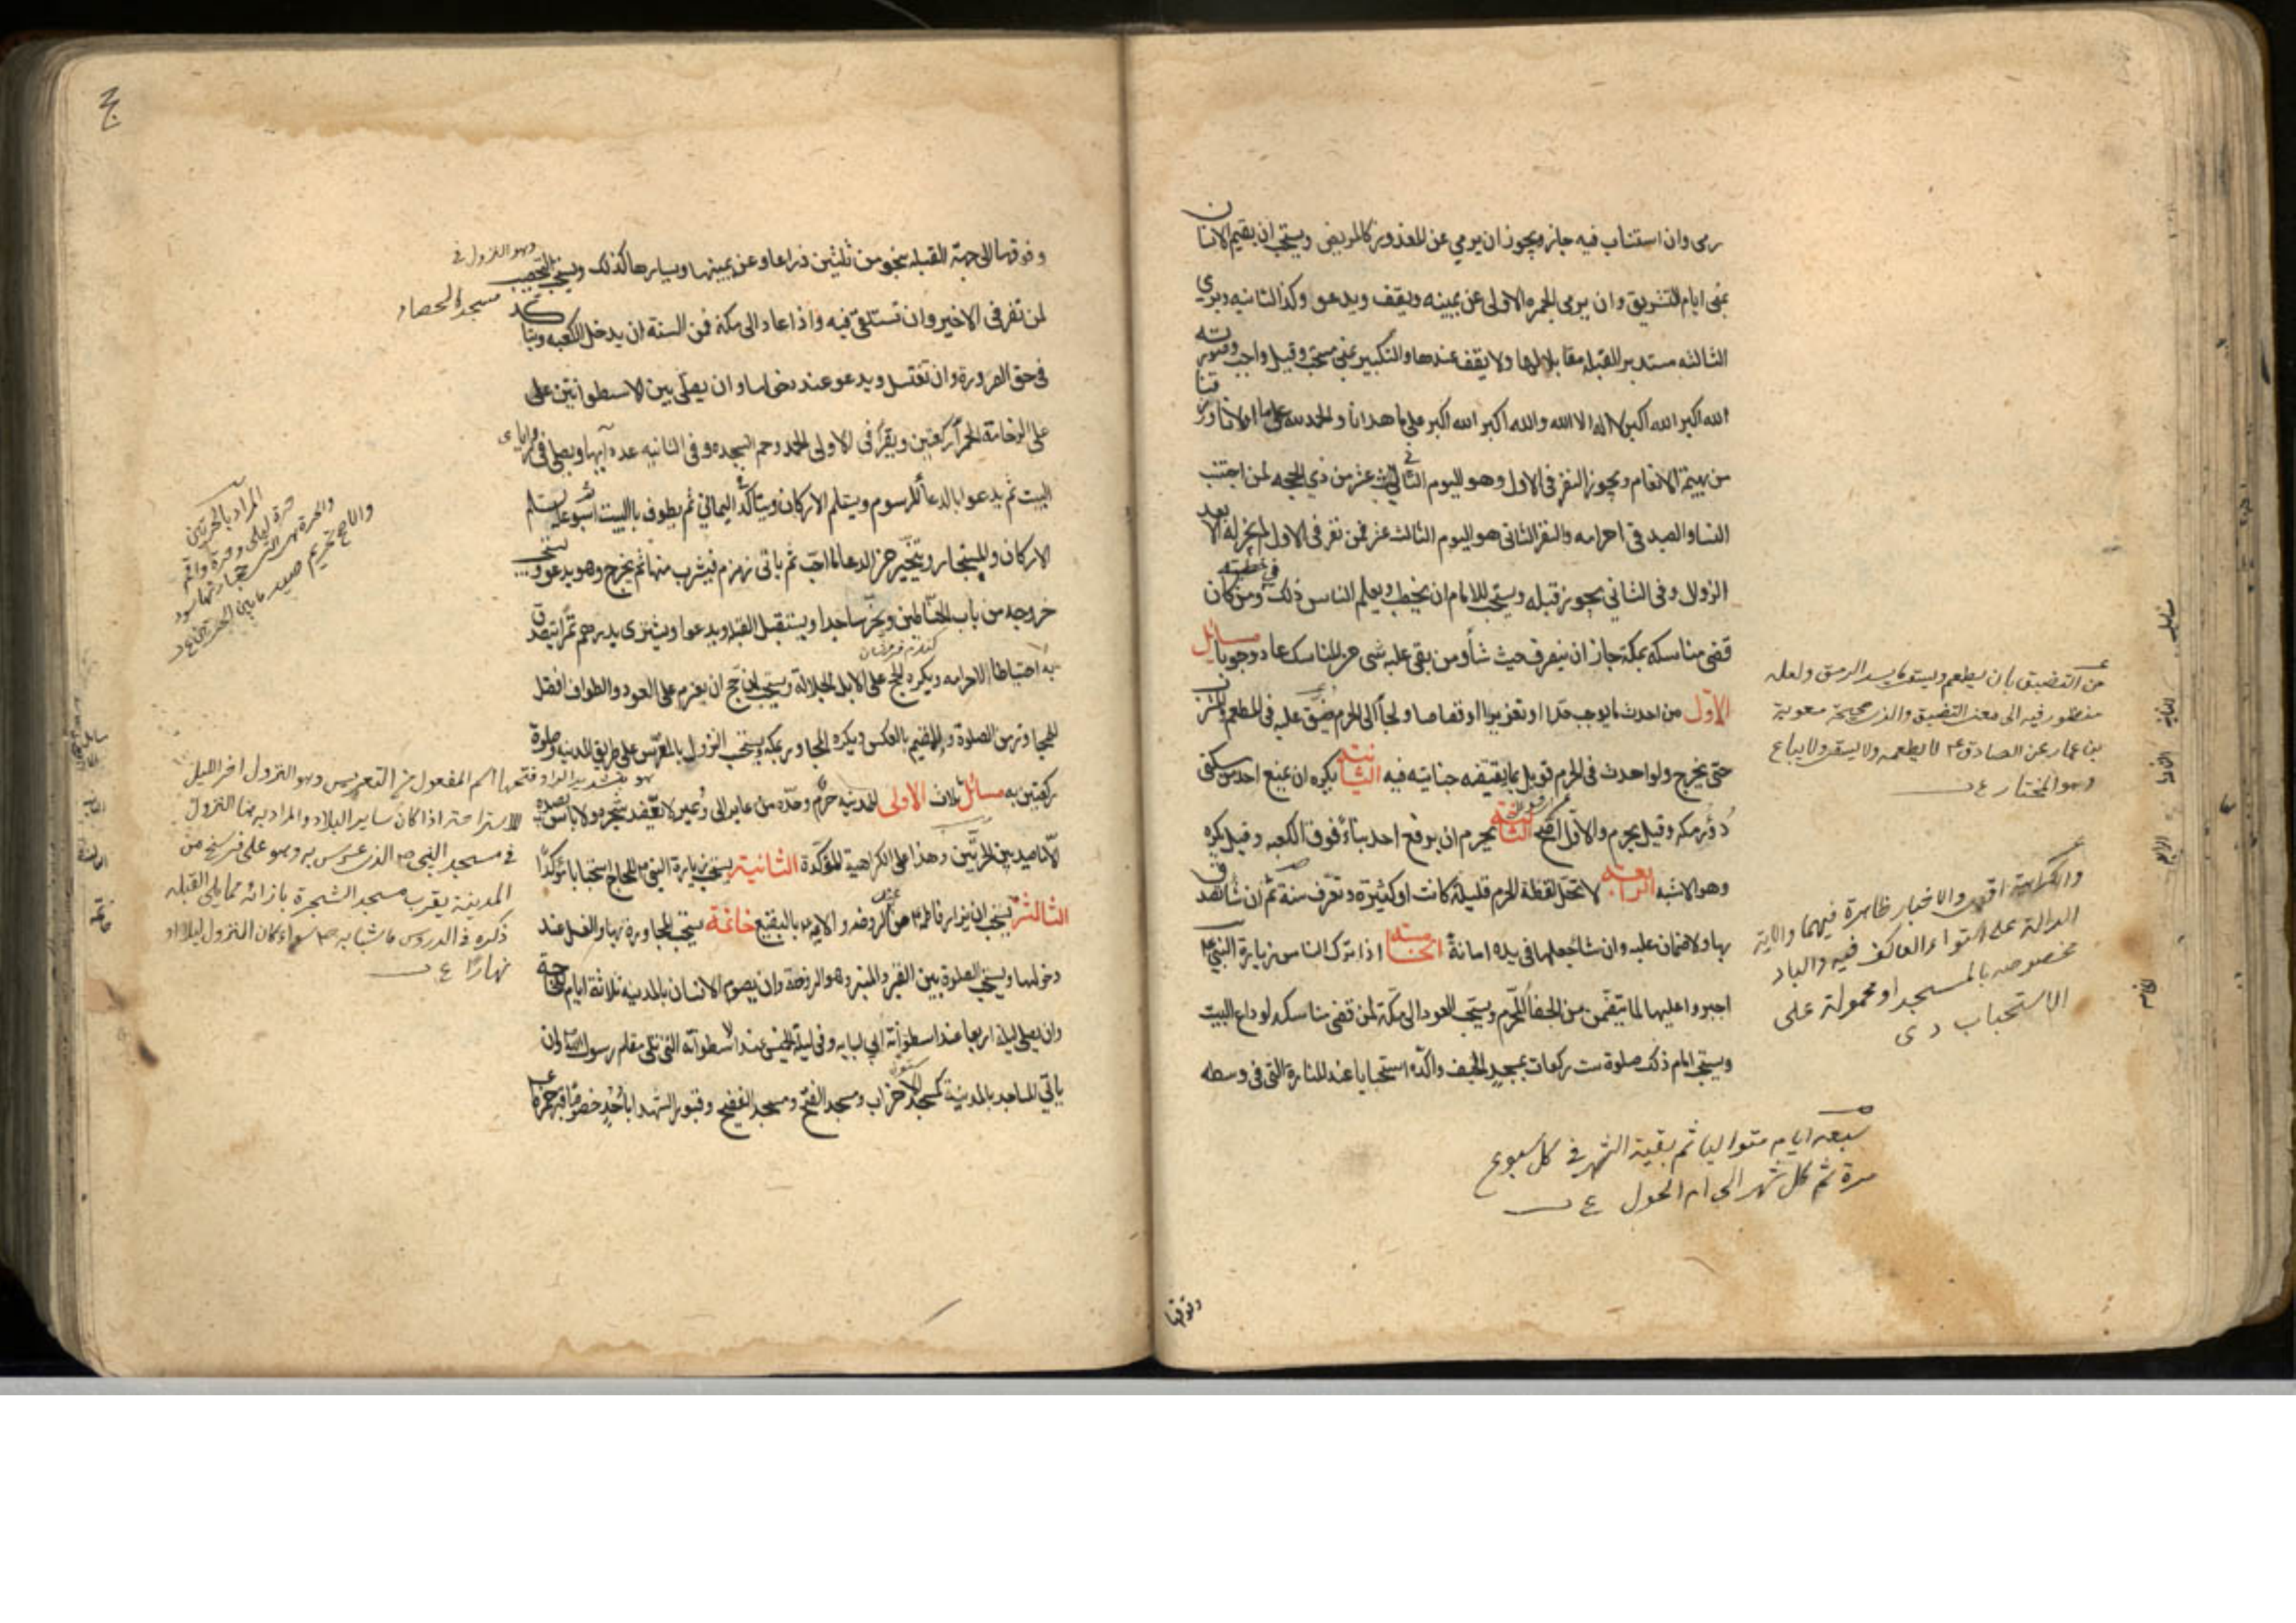 رمى وان استناب فيه جاز ويجوز ان يرمي عن المعذور كالمريض ويستحب ان يقيم الانسان
بمنى ايام التشريق وان يرمى الجمره الاولى عن يمينه ويقف ويدعو وكذا الثانيه ويرمي
الثالثه مستدبر القبله مقابلا لها ولا يقف عندها والتكبير بمنى مستحب وقيل واجب وصورته
الله اكبر الله اكبر لا اله الا الله والله اكبر الله اكبر على ما هدانا والحمد لله على ما اولانا ورزقنا
من بهيمة الانعام ويجوز النفر فى الاول وهو اليوم الثاني عشر من ذي الحجه لمن اجتنب
النسا والصيد فى احرامه والنفر الثانى هو اليوم الثالث عشر فمن نفر فى الاول لم يجز له الا بعد
الزوال وفى الثاني يجوز قبله ويستحب للامام ان يخطب ويعلم الناس ذلك ومن كان
قضى مناسكه بمكة جاز ان ينصرف حيث شاء ومن بقى عليه شى من المناسك عاد وجوبا مسائل
الاول من احدث ما يوجب حدا او تعزيرا او قصاصا ولجأ الى الحرم ضيق عليه فى المطعم والمشرب
حتى يخرج ولو احدث فى الحرم قوبل بما يقتضيه جنايته فيه الثانية يكره ان يمنع احد من سكنى
دور مكه وقيل يحرم والاول اصح الثالثة يحرم ان يرفع احد بناءً فوق الكعبه وقيل يكره
وهو الاشبه الرابعة لا تحل لقطة الحرم قليلة كانت او كثيرة وتعرف سنة ثم ان شا تصدق
بها ولا ضمان عليه وان شا جعلها فى يده امانة الخامسة اذا ترك الناس زيارة النبي ص
اجبروا عليها لما يتضمن من الجفا المحرم ويستحب العود الى مكة لمن قضى مناسكه لوداع البيت
ويستحب امام ذلك صلوة ست ركعات بمسجد الخيف واكده استحبابا عند المنارة التى فى وسطه
من التضييق بان يطعم ويسقى ما يسد الرمق ولعله
منظور فيه الى معنى التضييق والذى صحيحة معوية
بن عمار عن الصادق ع لا يطعم ولا يسقى ولا يباع
وهو المختار ع ن
والكراهة اقوى والاخبار ظاهرة فيهما والاية
الدالة على استواء العاكف فيه والباد
مخصوصه بالمسجد او محمولة على
الاستحباب
سبعه ايام متواليا ثم بقية الشهر فى كل اسبوع
مرة ثم كل شهر الى تمام الحول ع ن
وفوقها
وفوقها الى جهة القبله بنحو من ثلثين ذراعا وعن يمينها ويسارها كذلك ويستحب التحصيب
وهو النزول فى
مسجد الحصباء
لمن نفر فى الاخير وان تستلقي فيه واذا عاد الى مكة فمن السنة ان يدخل الكعبه ويتاكد
فى حق الصرورة وان تغتسل ويدعو عند دخولها وان يصلى بين الاسطوانتين على
على الرخامة الحمرا ركعتين ويقرأ فى الاولى الحمد وحم السجده وفى الثانيه عدد آيها ويصلى فى زوايا
البيت ثم يدعوا بالدعا المرسوم ويستلم الاركان ويتاكد اليماني ثم يطوف بالبيت اسبوعا ثم يستلم
الاركان والمستجار ويتخير من الدعا ما احب ثم ياتى زمزم فيشرب منها ثم يخرج وهو يدعو ويستحب
خروجه من باب الحناطين ويخر ساجدا ويستقبل القبله ويدعوا ويشترى بدرهم تمرا يتصدق
به احتياطا لاحرامه ويكره الحج على الابل الجلالة ويستحب لمن حج ان يعزم على العود والطواف افضل
للمجاور من الصلوة وللمقيم بالعكس ويكره المجاورة بمكة ويستحب النزول بالمعرس على طريق المدينة وصلوة
ركعتين به مسائل ثلاث الاولى للمدينه حرم وحده من عاير الى وعير لا يعضد شجره ولا باس بصيده
الا ما صيد بين الحرتين وهذا على الكراهية المؤكدة الثانية يستحب زيارة النبى ص للحاج استحبابا مؤكدًا
الثالثة يستحب ان يزار فاطمه ع من عند الروضه والايمه ع بالبقيع خاتمة يستحب المجاورة بها والغسل عند
دخولها ويستحب الصلوة بين القبر والمنبر وهو الروضة وان يصوم الانسان بالمدينه ثلاثة ايام للحاجة
وان يصلى ليلة اربعا عند اسطوانة ابي لبابه وفى ليلة الخميس عند الاسطوانه التى تلى مقام رسول الله ص وان
ياتي المساجد بالمدينة كمسجد الاحزاب ومسجد الفتح ومسجد الفضيخ وقبور الشهدا باُحُد خصوصا قبر حمزة
المراد بالحرتين
حرة ليلى وحرة واقم
والحرة هى التى حجارتها سود
والاصح تحريم صيد ما بين الحرتين
هو بتشديد الراء وفتحها اسم المفعول من التعريس وهو النزول اخر الليل
للاستراحة اذا كان ساير البلاد والمراد به هنا النزول
فى مسجد النبى ص الذى عرس به وهو على فرسخ من
المدينة يقرب مسجد الشجرة بازائه مما يلى القبله
ذكره فى الدروس سواء كان النزول ليلا او
نهارًا ع ن